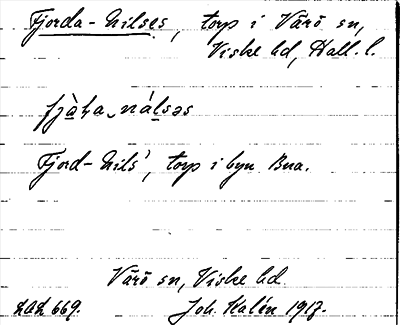 Fjorda-Nilses, torp i Värö sn,
Viske hd, Hall. l.
Fjord-Nils', torp i byn Bua.
Värö sn, Viske hd.
ZAZ 669. Joh. Kalén 1917.